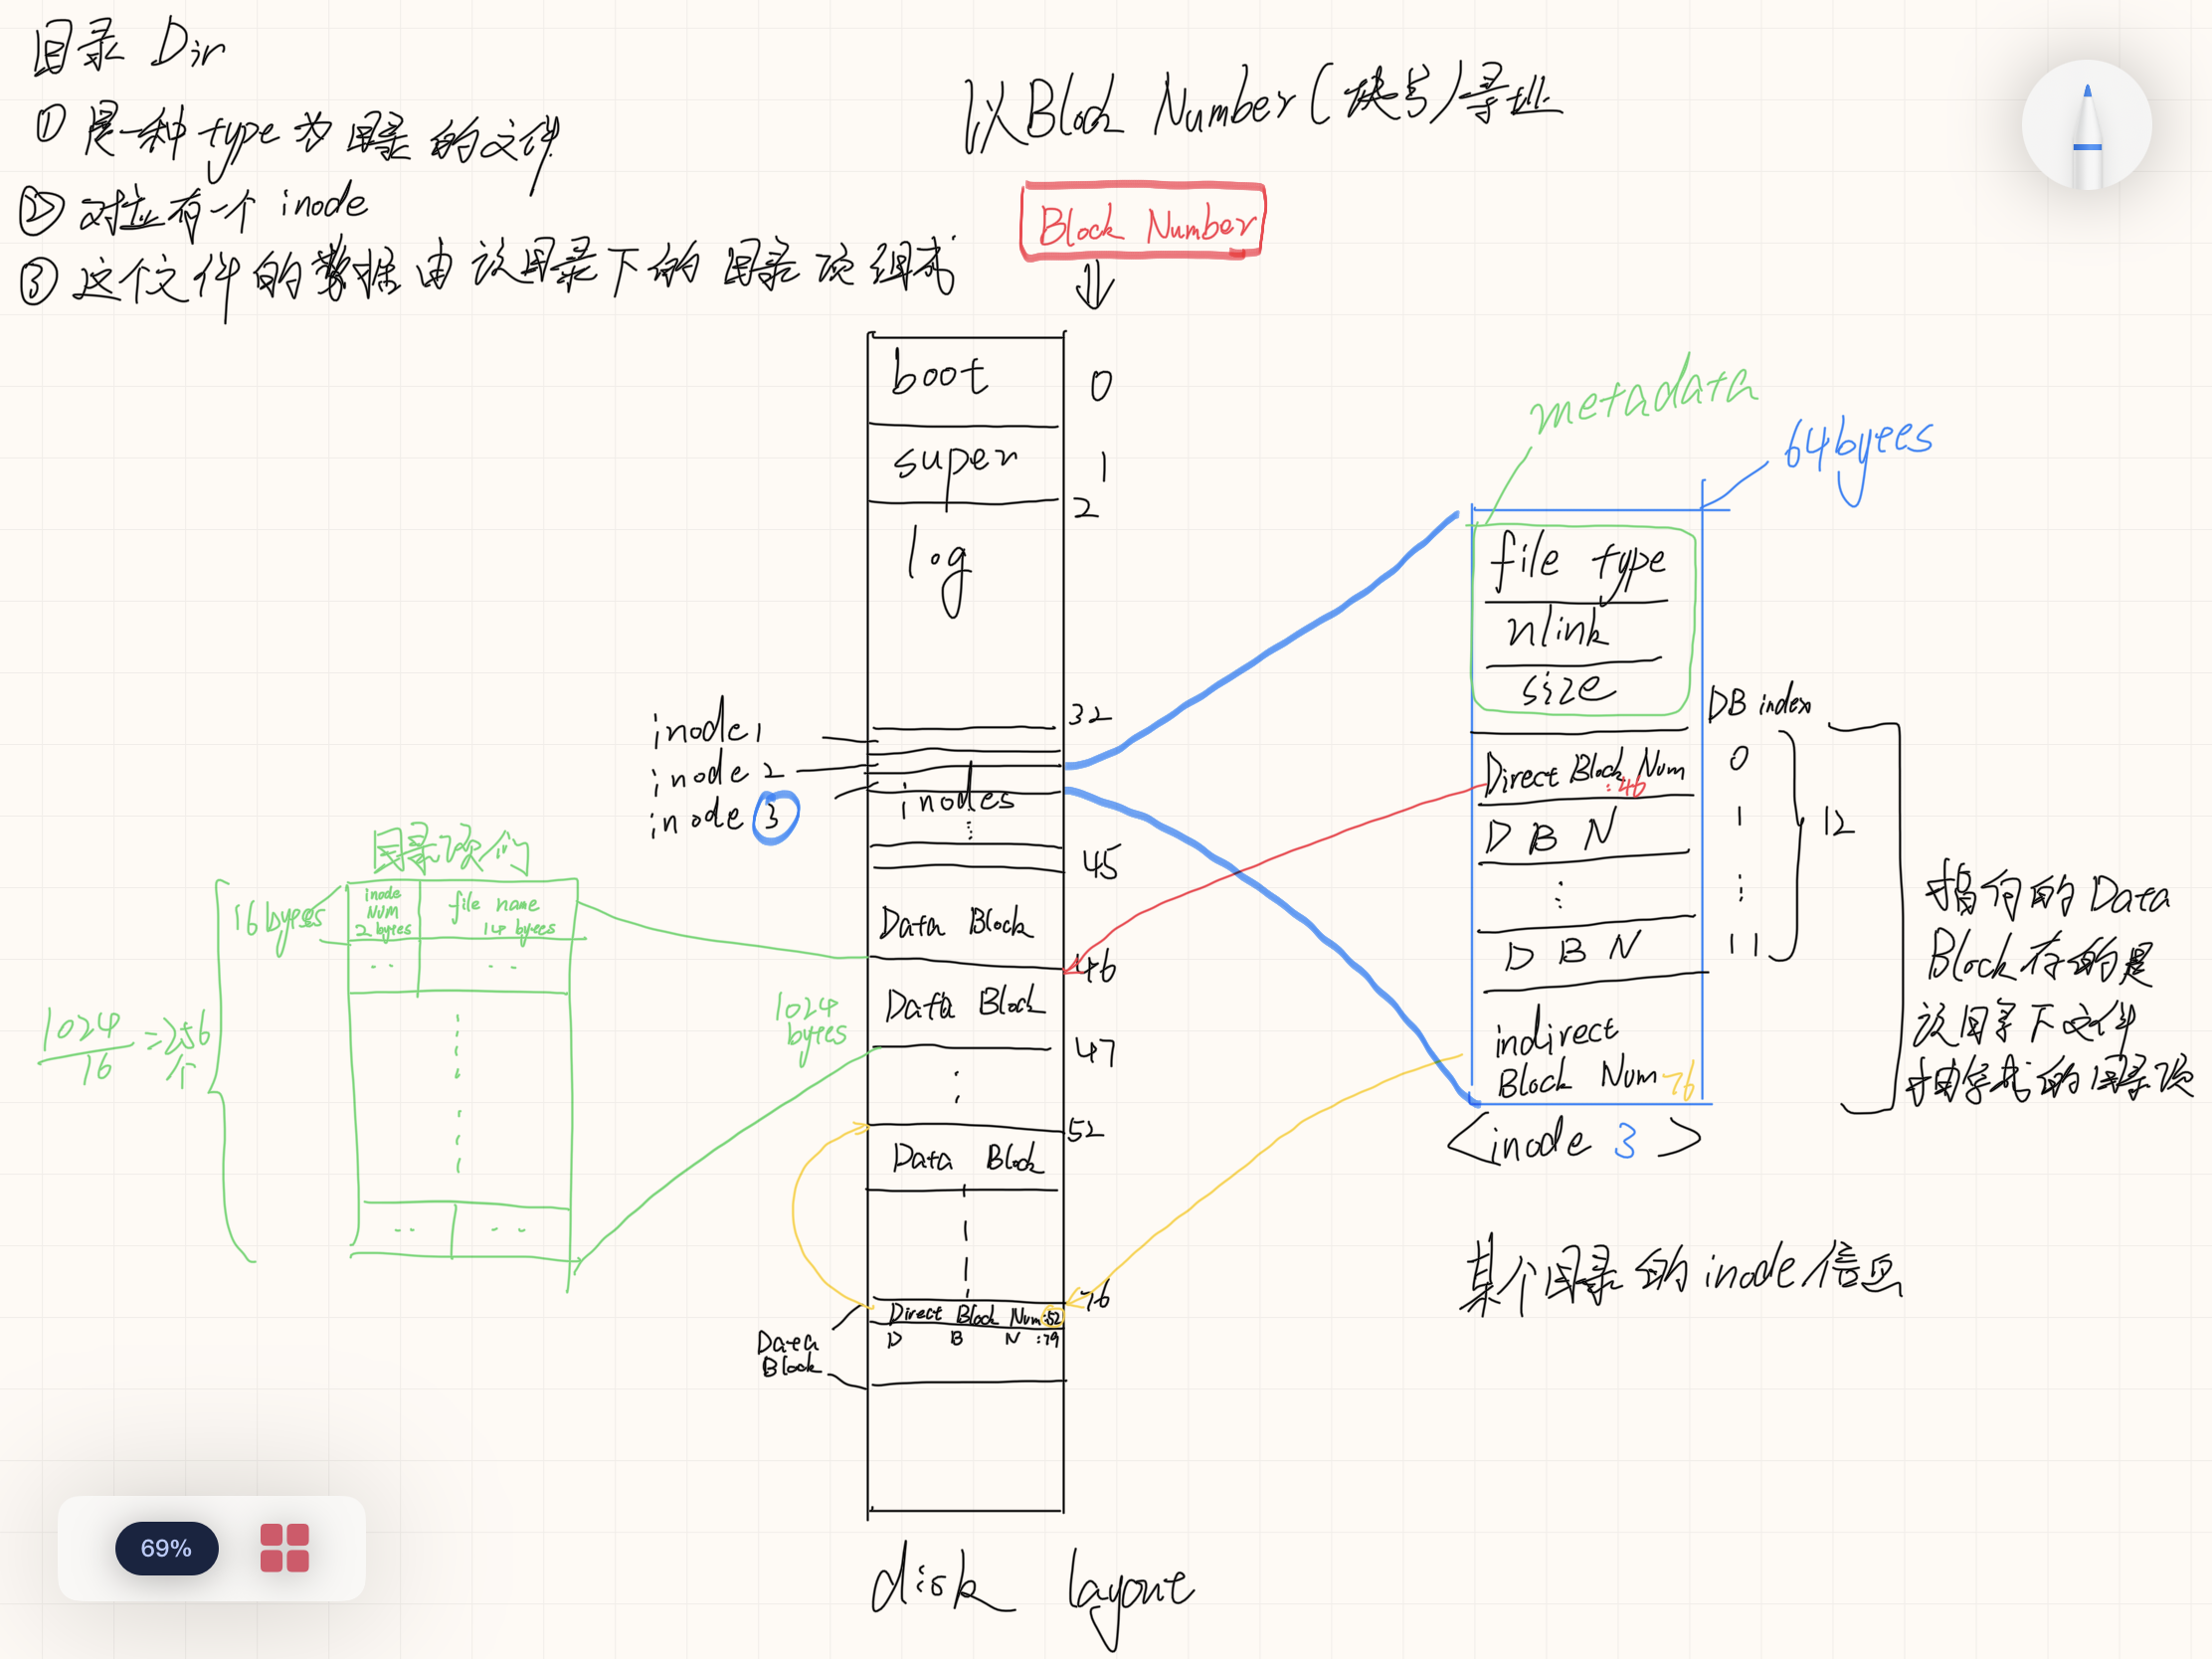 目录 Dir
① 是一种 type 为 目录 的文件
② 对应有一个 inode
③ 这个文件的数据由该目录下的目录项组成
以Block Number(块号)寻址
Block Number
boot 0
super 1
2
log
32
inode 1
inode 2
inode 3
inodes
45
Data Block
46
Data Block
47
52
Data Block
76
Direct Block Num:52
D B N :79
Data
Block
disk layout
目录项们
16 byees
inode
NUM
2 bytes
file name
14 byees
1024
16
=256
个
1024
byees
metadata
64byees
file type
nlink
size
DB index
Direct Block Num
:46
0
D B N
1
D B N
11
12
indirect
Block Num 76
<inode 3 >
指向的 Data
Block 存的是
该目录下文件
抽象成的目录项
某个目录的inode信息
69%